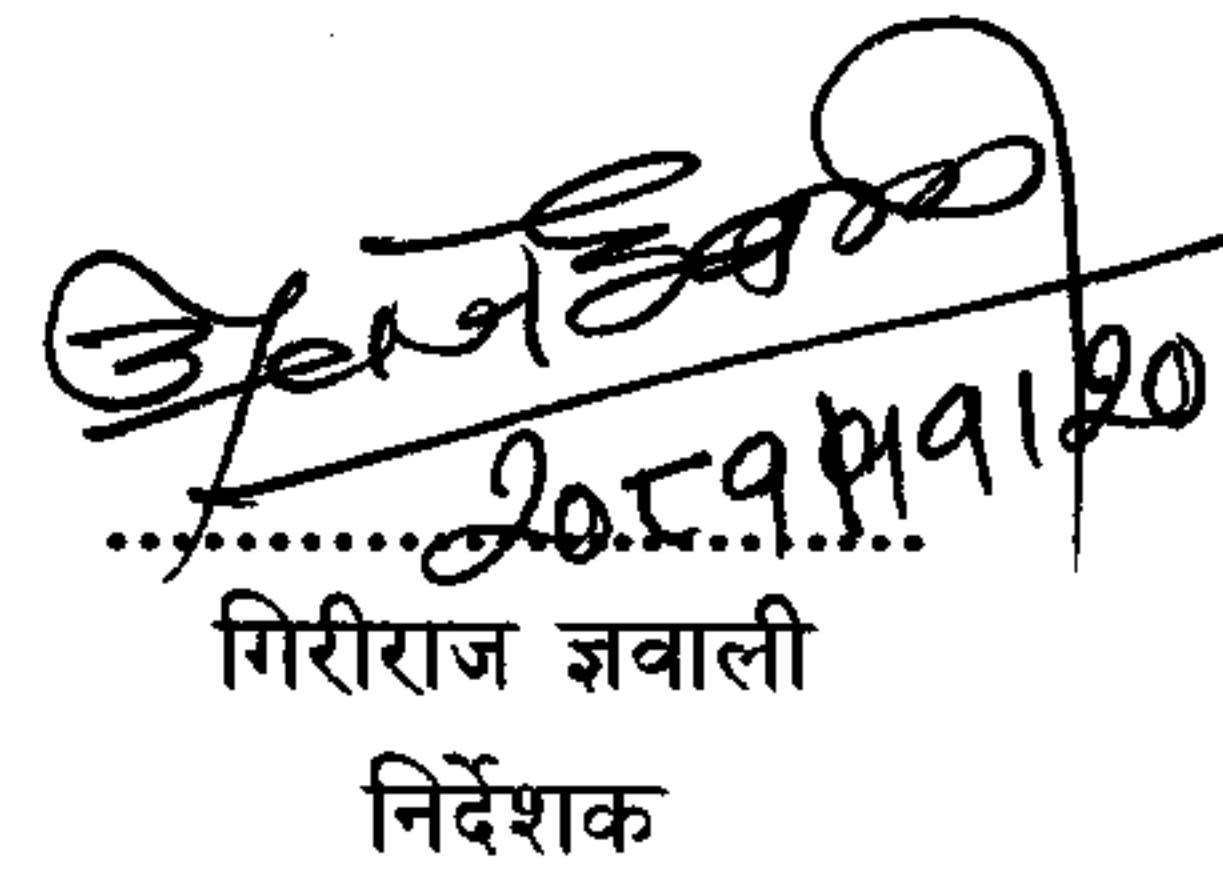 २०८१।११।२०
गिरीराज ज्ञवाली
निर्देशक